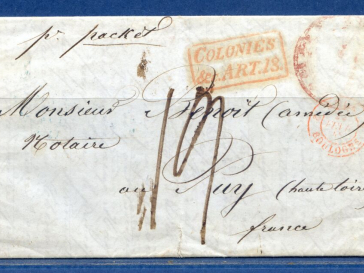 pr. packet
COLONIES
&c. ART.13.
Monsieur Benoit (amédée
Notaire
au Puy (haute loire
france
BOULOGNE